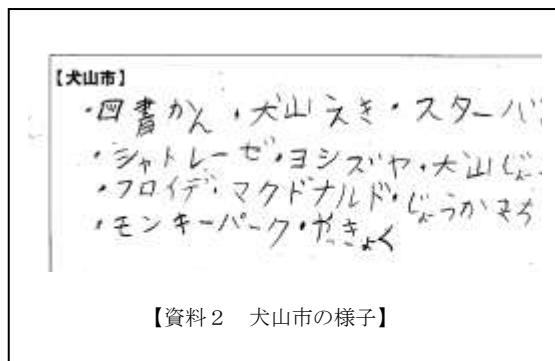 【犬山市】
・図書かん・犬山えき・スターバ
・シャトレーゼ・ヨシズヤ・犬山じょ
・フロイデ・マクドナルド・じょうかまち
・モンキーパーク・やっきょく
【資料2 犬山市の様子】